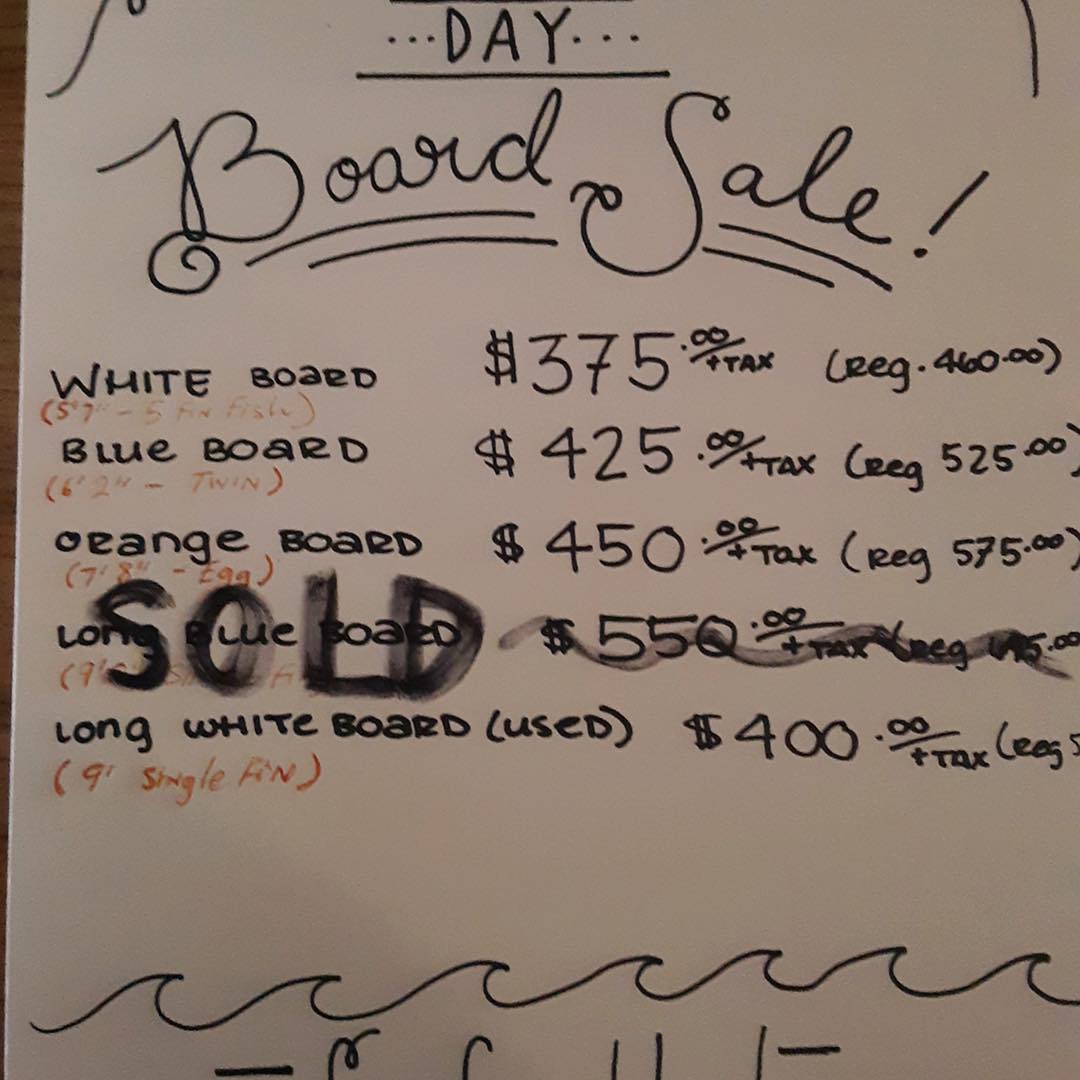 ...DAY...
Board Sale!
WHITE BOARD $375.00 +TAX (Reg. 460.00)
(5'7" - 5 Fin Fish)
BLUE BOARD $425.00 +TAX (Reg 525.00)
(6'2" - TWIN)
ORANGE BOARD $450.00 +TAX (Reg 575.00)
(7'8" - Egg)
SOLD
LONG BLUE BOARD $550.00 +TAX (Reg
LONG WHITE BOARD (USED) $400.00 +TAX (Reg
(9' Single FIN)